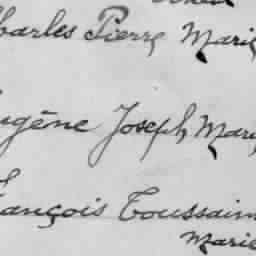 harles Pierre Marie
ugène Joseph Mari
rançois Toussain
Marie